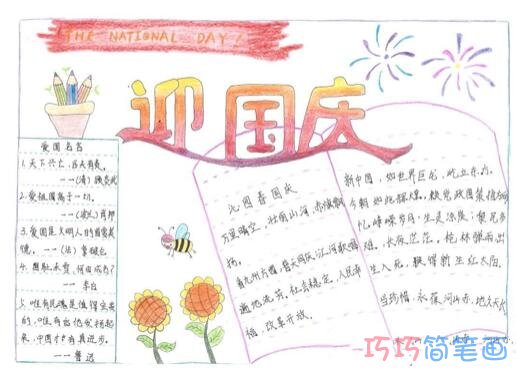 THE NATIONAL DAY!
迎国庆
爱国名言
1.天下兴亡，匹夫有责。
——(清)顾炎武
2.爱祖国高于一切。
——(波兰)肖邦
3.爱国是文明人的首要美
德。——(法)拿破仑
4.国耻未雪，何由成名？
——李白
5.唯有民魂是值得宝贵
的，唯有他发扬起
来，中国才有真进步。
——鲁迅
沁园春国庆
万里晴空，壮丽山河，赤旗飘
扬。
看九州方圆，普天同庆；江河欢唱
遍地流芳。社会稳定，人民幸
福，改革开放。
新中国，如世界巨龙，屹立东方。
今朝如此辉煌，赖党政国策指
忆峥嵘岁月，生灵涂炭；
难，长夜茫茫。枪林弹雨，出
生入死，赢得新生红太阳。
当珍惜，永葆河山赤，地久天长
巧巧简笔画